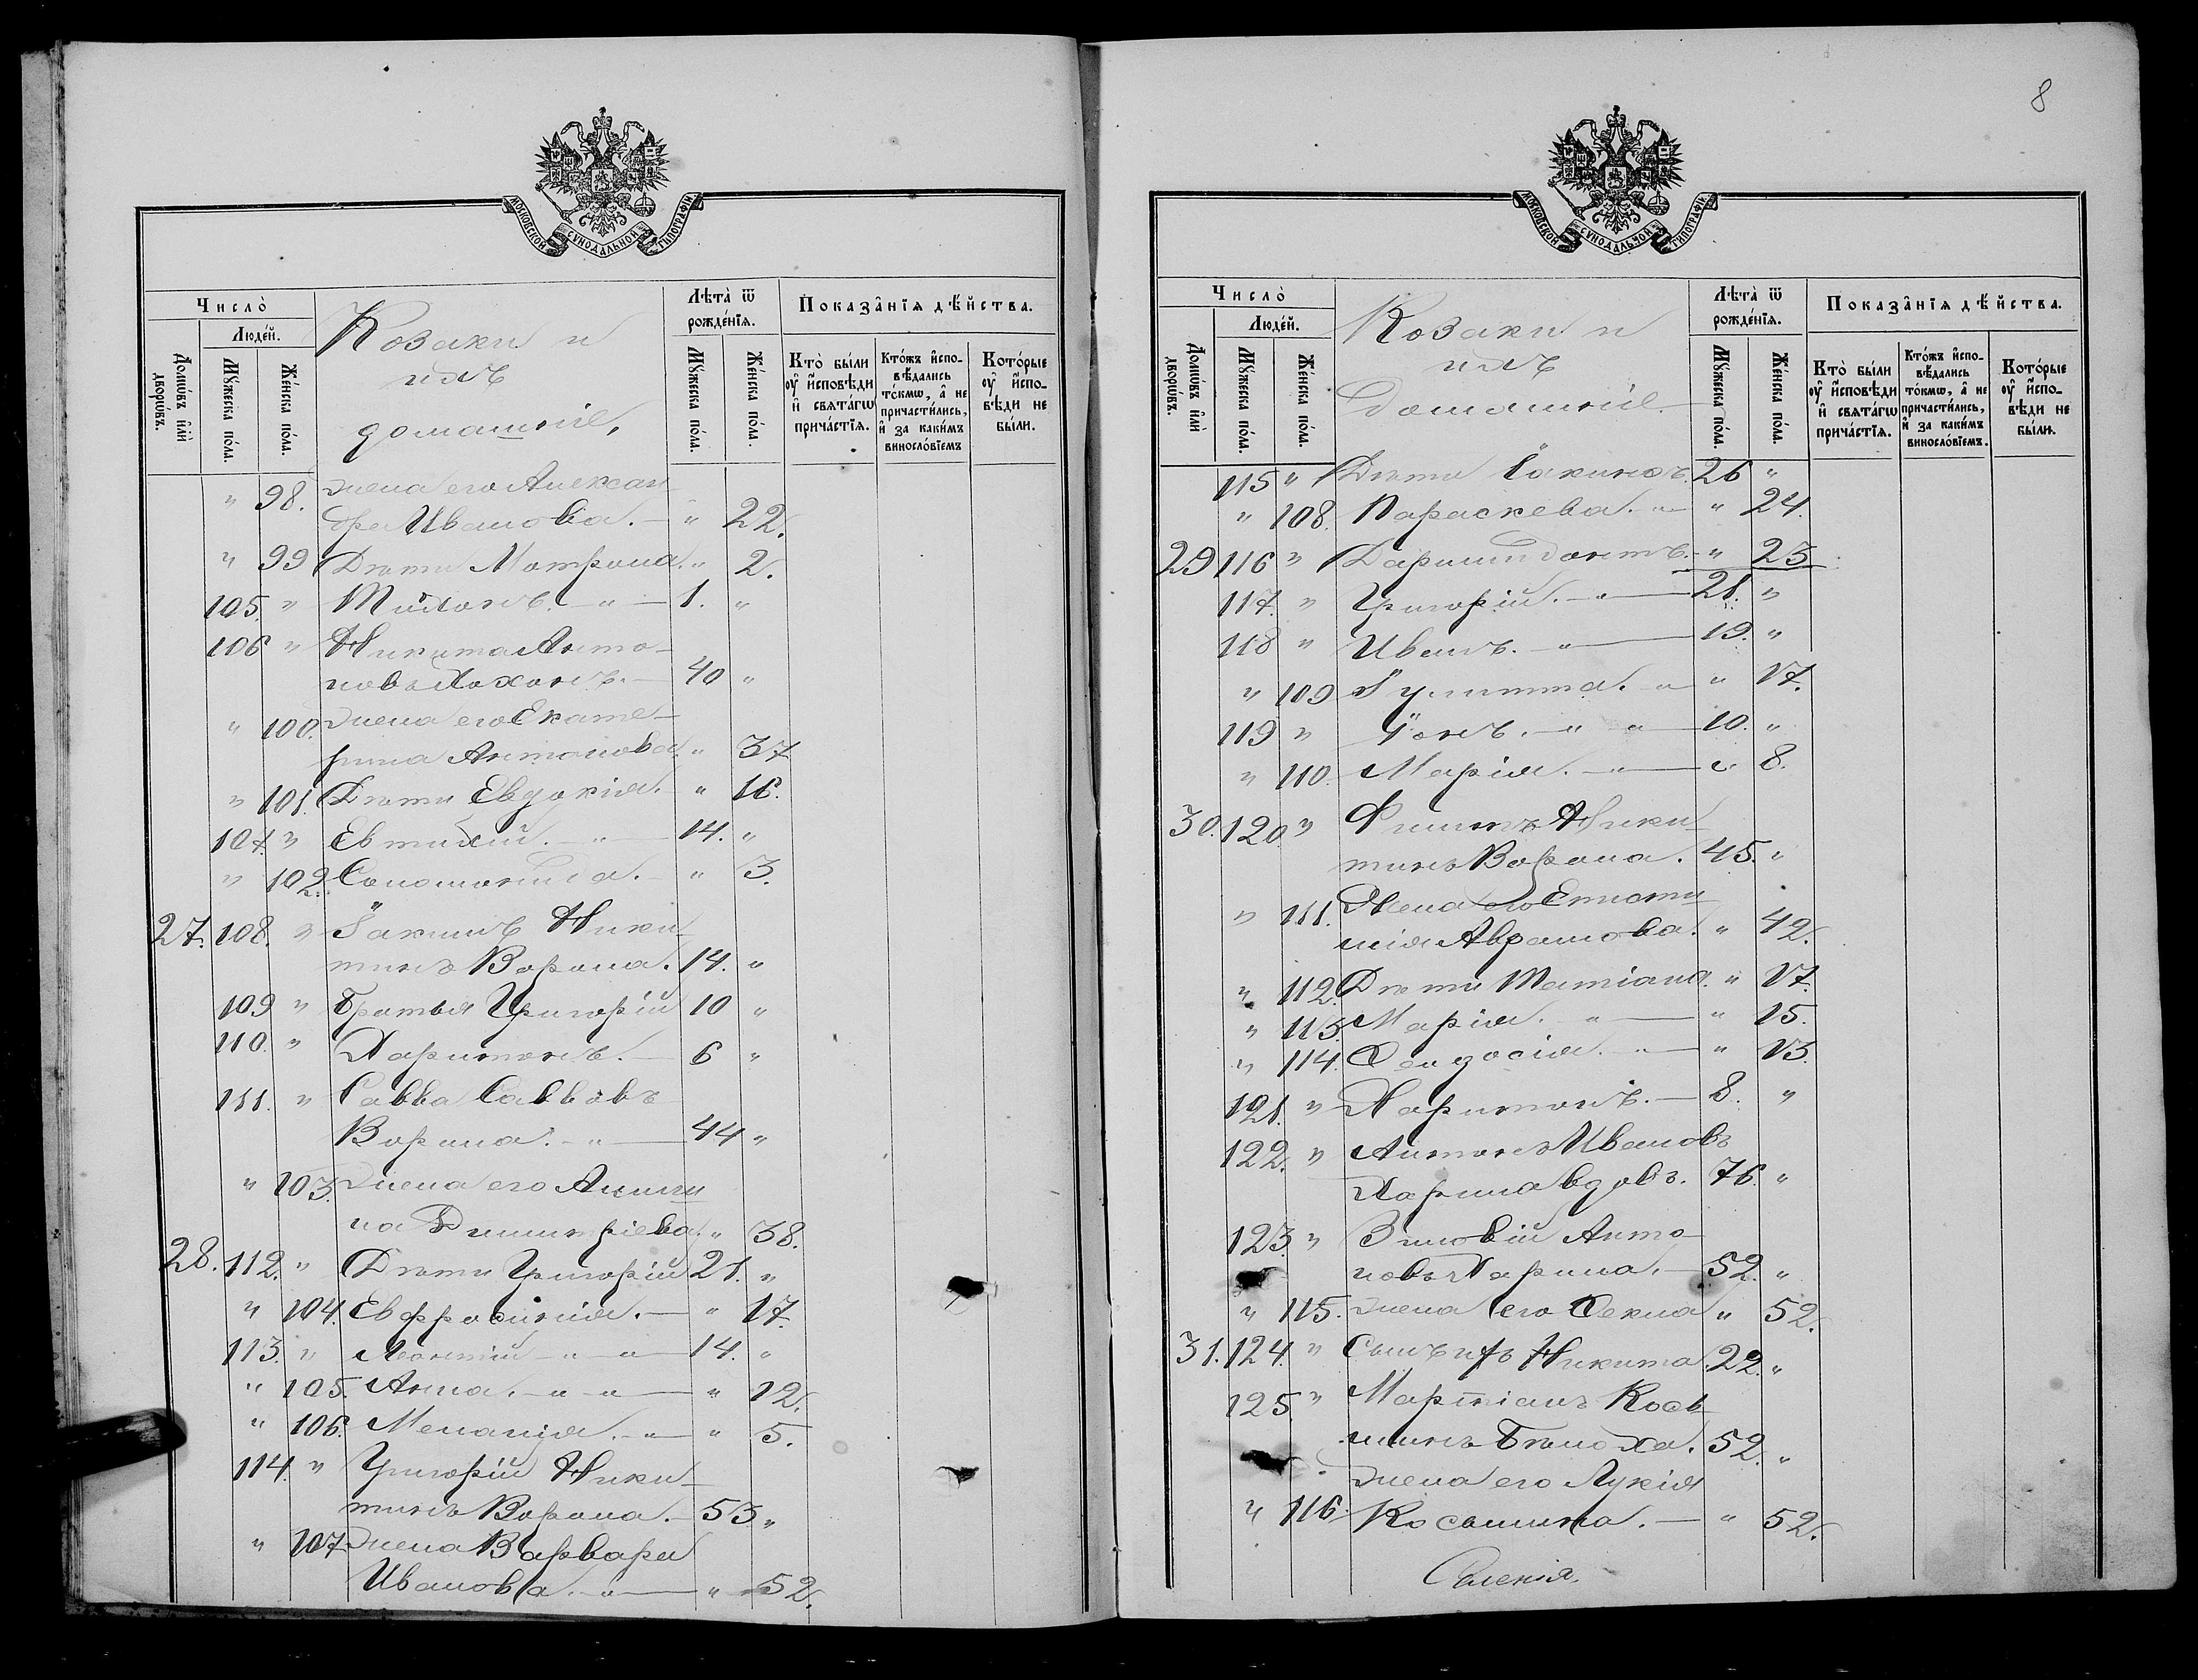 8
МОСКОВСКОЙ СѴНОДАЛЬНОЙ ТІПОГРАФІИ
Число̀
Люде́й.
Домѡ́въ и҆лѝ дворѡ́въ.
Мꙋ́жеска по́ла.
Же́нска по́ла.
Козаки и
ихъ
домашніе,
Лѣ́та ѿ рожде́нїѧ.
Мꙋ́жеска по́ла.
Же́нска по́ла.
Показа̑нїѧ дѣ́йства.
Кто̀ бы́ли оу҆ и҆сповѣ́ди и҆ свѧта́гѡ прича́стїѧ.
Кто́жъ и҆сповѣ́дались то́кмѡ, а҆ не причасти́лись, и҆ за каки́мъ винosло́вїемъ.
Кото́рые оу҆ и҆сповѣ́ди не бы́ли.
" 98. жена его Алексан-
дра Иванова. — " 22.
" 99 Дѣти Матрона. " 2.
105. " — " — 1. "
106 " Никита Анто-
новъ — 40 "
" 100. жена его Екате-
рина Антонова. " 37
" 101. Дѣти Евдокія. — " 16.
107. " Евтихій. — " — 14. "
" 102. Соломонида. — " 3.
27. 108. " Іакимъ Ники-
тинъ Ворона. 14. "
109 " Братья Григорій 10 "
110. " Харитонъ. — 6 "
111. " Савва Саввовъ
Ворона. — " — 44 "
" 103. Жена его Акили-
на Димитріева. " 38.
28. 112. " Дѣти Григорій 21. "
" 104. Евфросинія. — " 17.
113. " Леонтій — " — " — 14. "
" 105. Анна. — " — " — " 12.
" 106. Меланія. — " — " 5.
114. " Григорій Ники-
тинъ Ворона. — 53 "
" 107 жена Варвара
Иванова. — " — " 52.
МОСКОВСКОЙ СѴНОДАЛЬНОЙ ТІПОГРАФІИ
Число̀
Люде́й.
Домѡ́въ и҆лѝ дворѡ́въ.
Мꙋ́жеска по́ла.
Же́нска по́ла.
Козаки и
ихъ
домашніе.
Лѣ́та ѿ рожде́нїѧ.
Мꙋ́жеска по́ла.
Же́нска по́ла.
Показа̑нїѧ дѣ́йства.
Кто̀ бы́ли оу҆ и҆сповѣ́ди и҆ свѧта́гѡ прича́стїѧ.
Кто́жъ и҆сповѣ́дались то́кмѡ, а҆ не причасти́лись, и҆ за каки́мъ винosло́вїемъ.
Кото́рые оу҆ и҆сповѣ́ди не бы́ли.
115 " Дѣти Іакинфъ. 26 "
" 108. Параскева. — " — " 24.
29 116 " — " 23
117. " Григорій. — " — 21. "
118 " Иванъ. — " — 19. "
" 109 Іулитта. — " — " 17.
119 " Іонъ. — " — " — 10. "
" 110. Марія. — " — " 8.
30. 120 " Филиппъ Ники-
тинъ Ворона. 45. "
" 111. Жена его Епистимія Аврамова. " 42.
" 112. Дѣти Татіана. " 17.
" 113. Марія. — " — " 15.
" 114. Ѳеодосія. — " — " 13.
121. " Харитонъ. — 8. "
122. " Антонъ Ивановъ
Ларина вдовъ. 76. "
123. " Зиновій Анто-
новъ Ларина. — 52. "
" 115. жена его Ѳекла " 52.
31. 124. " Сынъ ихъ Никита. 22. "
125. " Мартіанъ Косьминъ Бѣлоха. 52. "
" 116. жена его Лукія
Косьмина. — " 52.